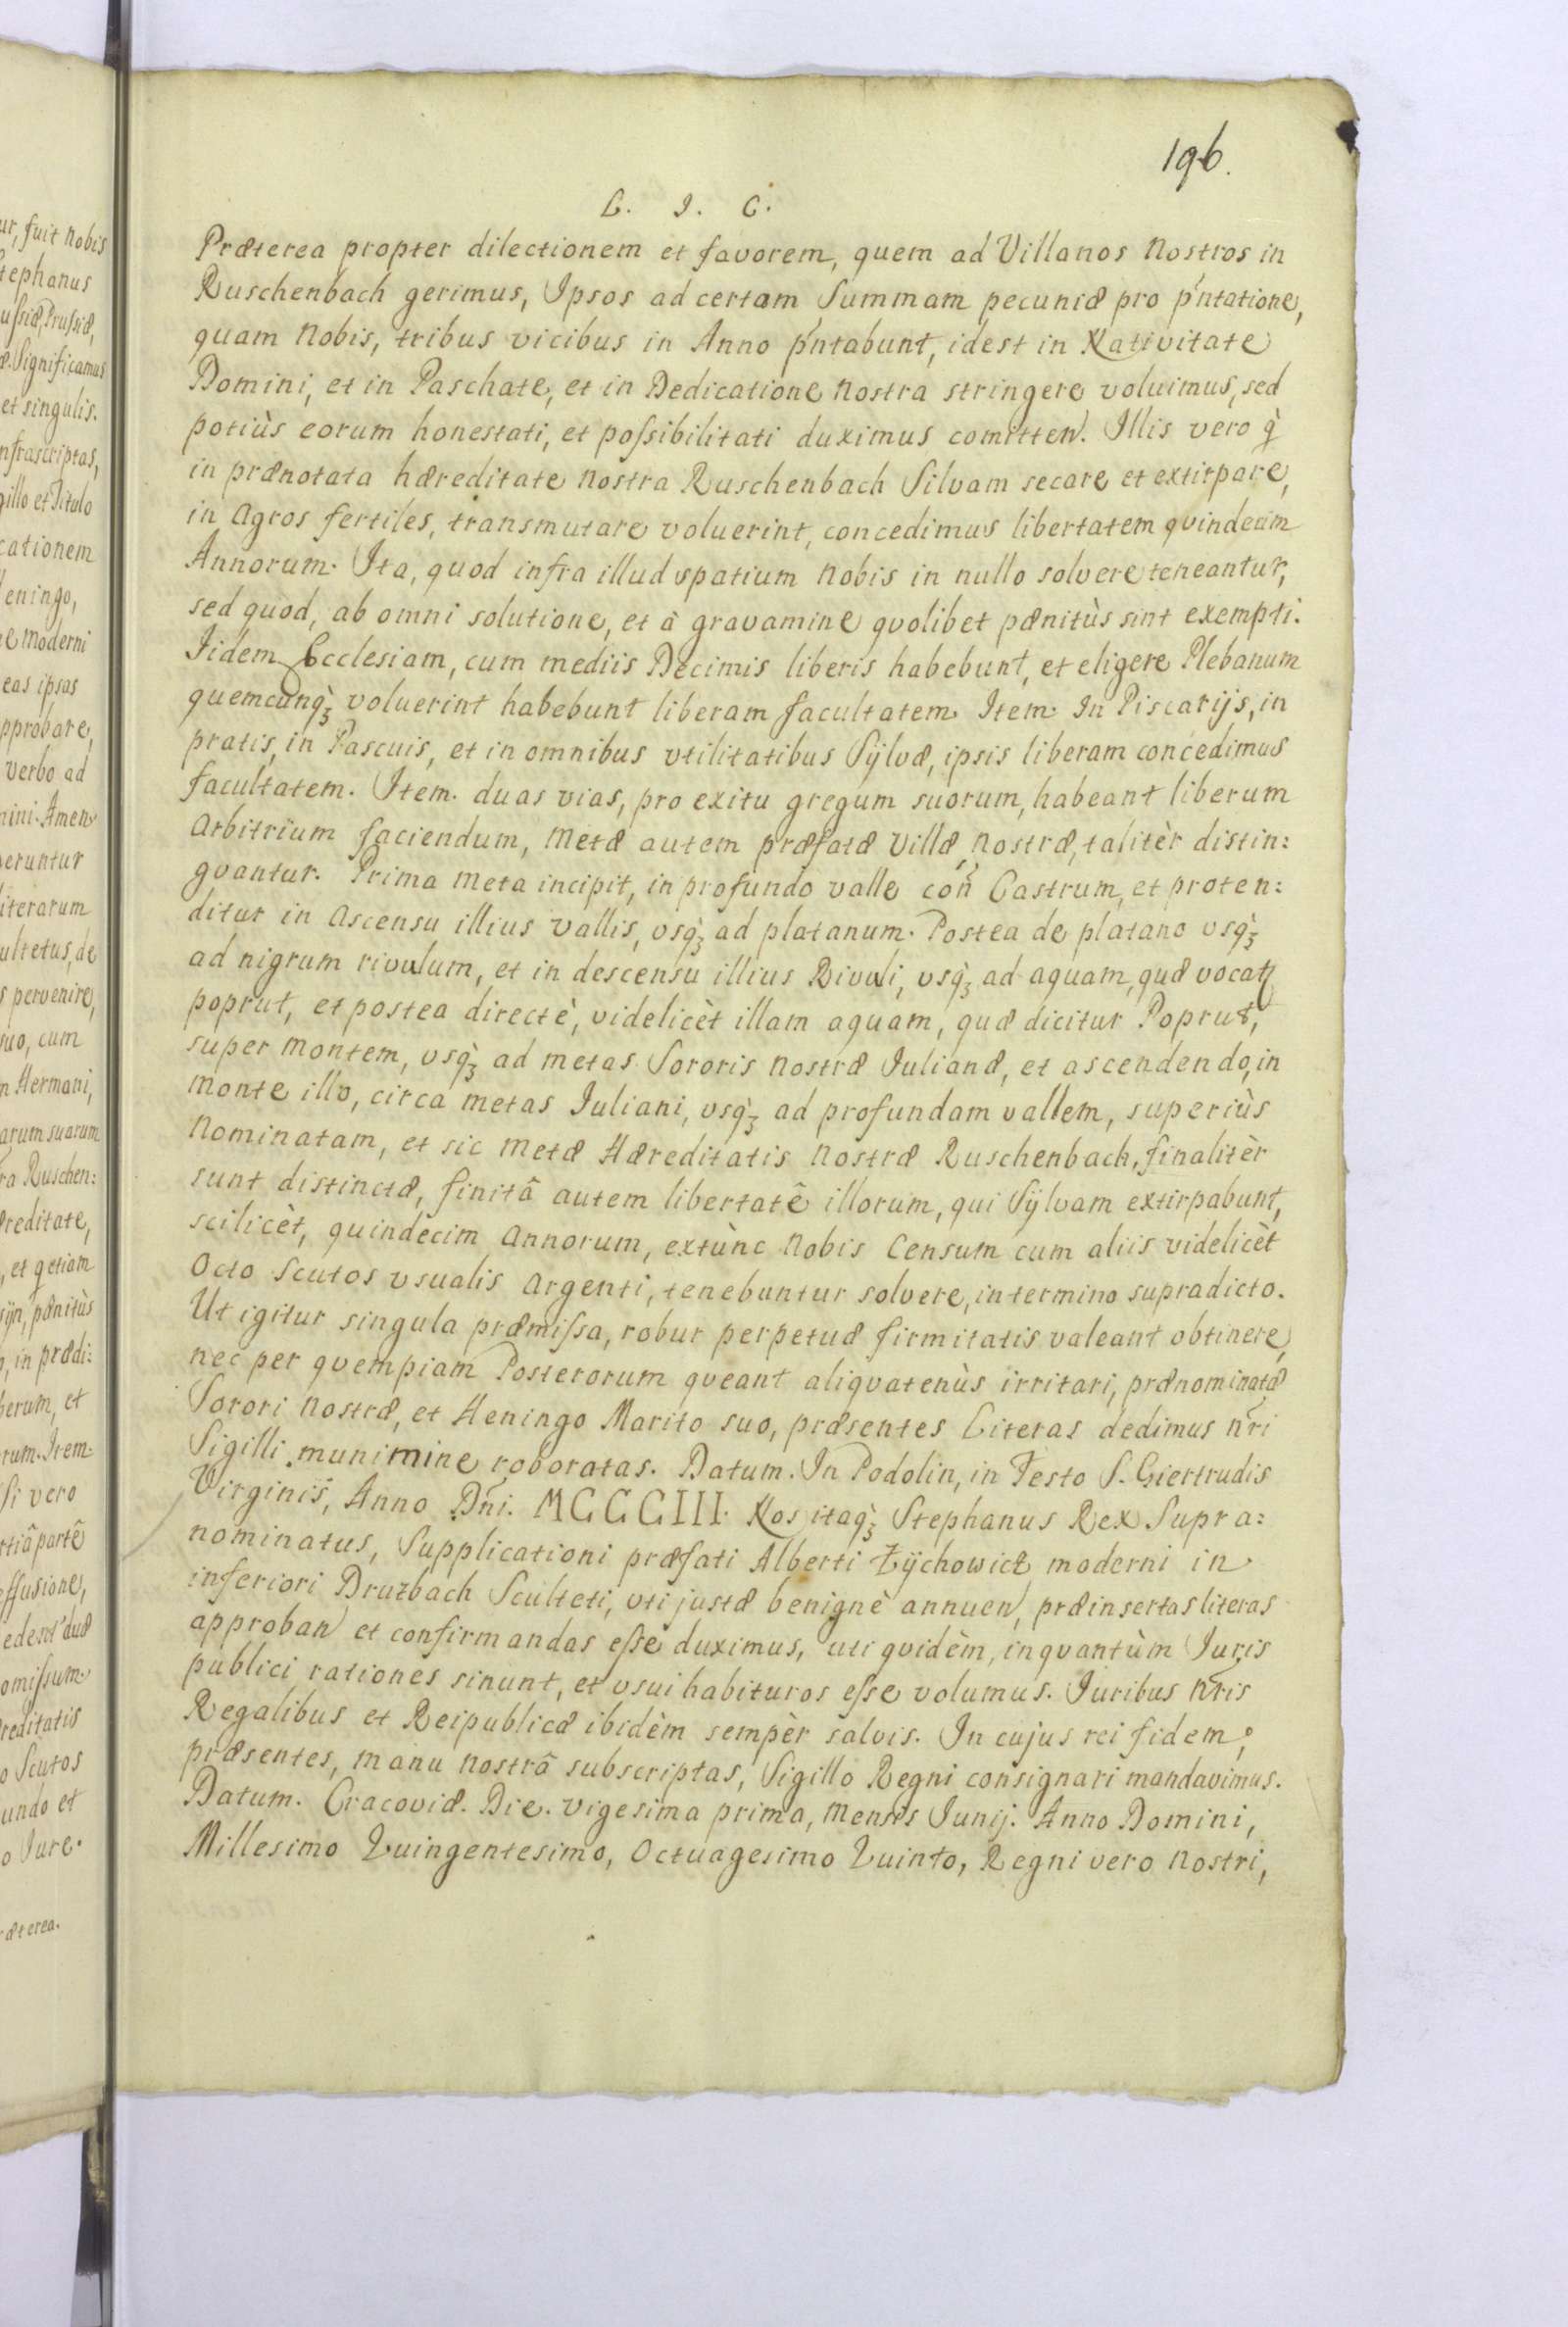 196.
L. I. C.
Præterea propter dilectionem et favorem, quem ad Villanos Nostros in
Ruschenbach gerimus, Ipsos ad certam Summam pecuniæ pro pńtatione,
quam Nobis, tribus vicibus in Anno pńtabunt, idest in Nativitate
Domini, et in Paschate, et in Dedicatione nostra stringere voluimus, sed
potiùs eorum honestati, et poſsibilitati duximus comitten. Illis vero q̀
in prænotata hæreditate nostra Ruschenbach Silvam secare et extirpare,
in Agros fertiles, transmutare voluerint, concedimus libertatem qvindecim
Annorum. Ita, quod infra illud spatium Nobis in nullo solvere teneantur,
sed quod, ab omni solutione, et à gravamine qvolibet pænitùs sint exempti.
Iidem Ecclesiam, cum mediis Decimis liberis habebunt, et eligere Plebanum
quemcunq̀ꝫ voluerint habebunt liberam facultatem. Item. In Piscarijs, in
pratis, in Pascuis, et in omnibus vtilitatibus Sÿlvæ, ipsis liberam concedimus
facultatem. Item. duas vias, pro exitu gregum suorum, habeant liberum
arbitrium faciendum, Metæ autem præfatæ Villæ, Nostræ, talitèr distin:
gvantur. Prima meta incipit, in profundo valle con̄ Castrum, et proten:
ditur in Ascensu illius vallis, vsq̀ꝫ ad platanum. Postea de platano vsq̀ꝫ
ad nigrum rivulum, et in descensu illius Rivuli, vsq̀ꝫ ad aquam, quæ vocatɉ
poprut, et postea directè, videlicèt illam aquam, quæ dicitur Poprut,
super montem, vsq̀ꝫ ad metas Sororis nostræ Iulianæ, et ascendendo, in
monte illo, circa metas Iuliani, vsq̀ꝫ ad profundam vallem, superiùs
Nominatam, et sic metæ Hæreditatis Nostræ Ruschenbach, finalitèr
sunt distinctæ, finitâ autem libertatê illorum, qui Sÿlvam extirpabunt,
scilicèt, quindecim Annorum, extùnc Nobis Censum cum aliis videlicèt
Octo Scutos vsualis Argenti, tenebuntur solvere, in termino supradicto.
Ut igitur singula præmiſsa, robur perpetuæ firmitatis valeant obtinere,
nec per qvempiam Posterorum qveant aliqvatenùs irritari, prænominatæ
Sorori Nostræ, et Heningo Marito suo, præsentes Literas dedimus nr̃i
Sigilli munimine roboratas. Datum. In Podolin, in Festo S. Giertrudis
Virginis, Anno Dn̄i. MCCCIII. Nos itaq̀ꝫ Stephanus Rex Supra:
nominatus, Supplicationi præfati Alberti Zÿchowicz moderni in
inferiori Druzbach Sculteti, vti justæ benignè annuen, præinsertas literas
approban et confirmandas eſse duximus, uti qvidèm, inqvantùm Iuris
publici rationes sinunt, et vsui habituros eſse volumus. Iuribus nr̃is
Regalibus et Reipublicæ ibidèm sempèr salvis. In cujus rei fidem,
præsentes, manu nostrâ subscriptas, Sigillo Regni consignari mandavimus.
Datum. Cracoviæ. Die. vigesima prima, mensis Iunij. Anno Domini,
Millesimo Quingentesimo, Octuagesimo Quinto, Regni vero Nostri,